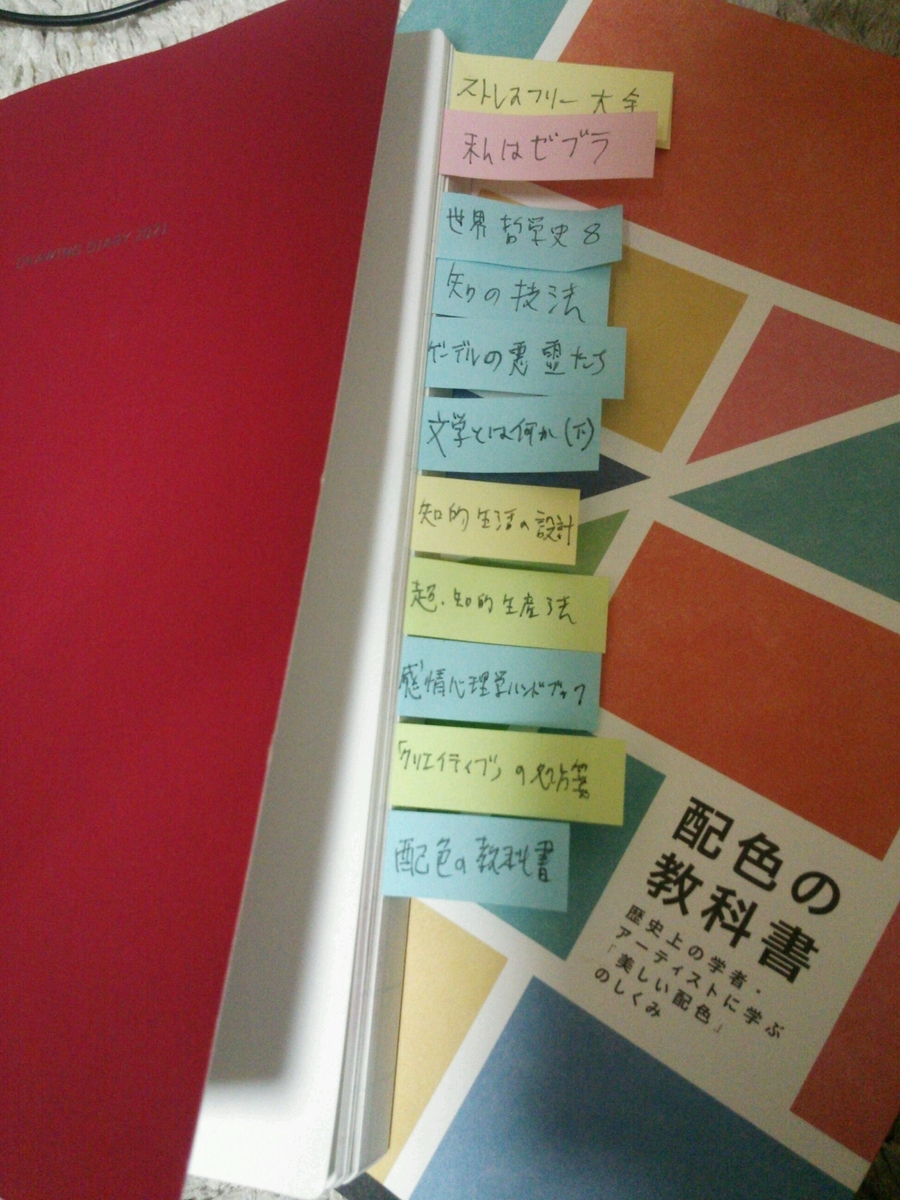 DRAWING DIARY 2021
ストレスフリー大全
私はゼブラ
世界哲学史8
知の技法
ゲーデルの悪霊たち
文学とは何か(下)
知的生活の設計
超、知的生産法
感情心理学ハンドブック
「クリエイティブ」の処方箋
配色の教科書
配色の
教科書
歴史上の学者・
アーティストに学ぶ
「美しい配色」
のしくみ